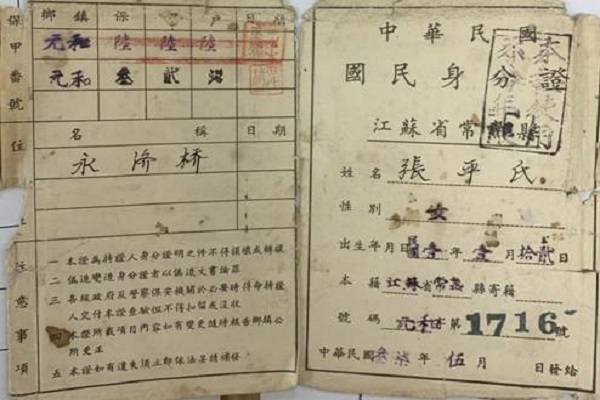 中華民國
國民身分證
江蘇省常熟縣
姓名 張平氏
性別 女
出生年月日 民國壹年壹月拾貳日
本籍 江蘇省常熟縣寄籍
號碼 元和第1716號
中華民國叁柒年伍月 日發給
保甲番號
鄉鎮 保 甲 戶 日期
元和 陸 陸 陸
元和 叁 貳
住
名稱 日期
永濟橋
注意事項
一 本證為持證人身分證明之件不得損壞或轉讓
二 偽造變造身分證者以偽造文書論罪
三 各級政府及警察保安機關於必要時得命持證
人交付本證查驗但不得扣留或沒收
四 本證所載項目內容如有變更應時報告鄉鎮公
所更正
五 本證如有遺失須立即依法呈請補發